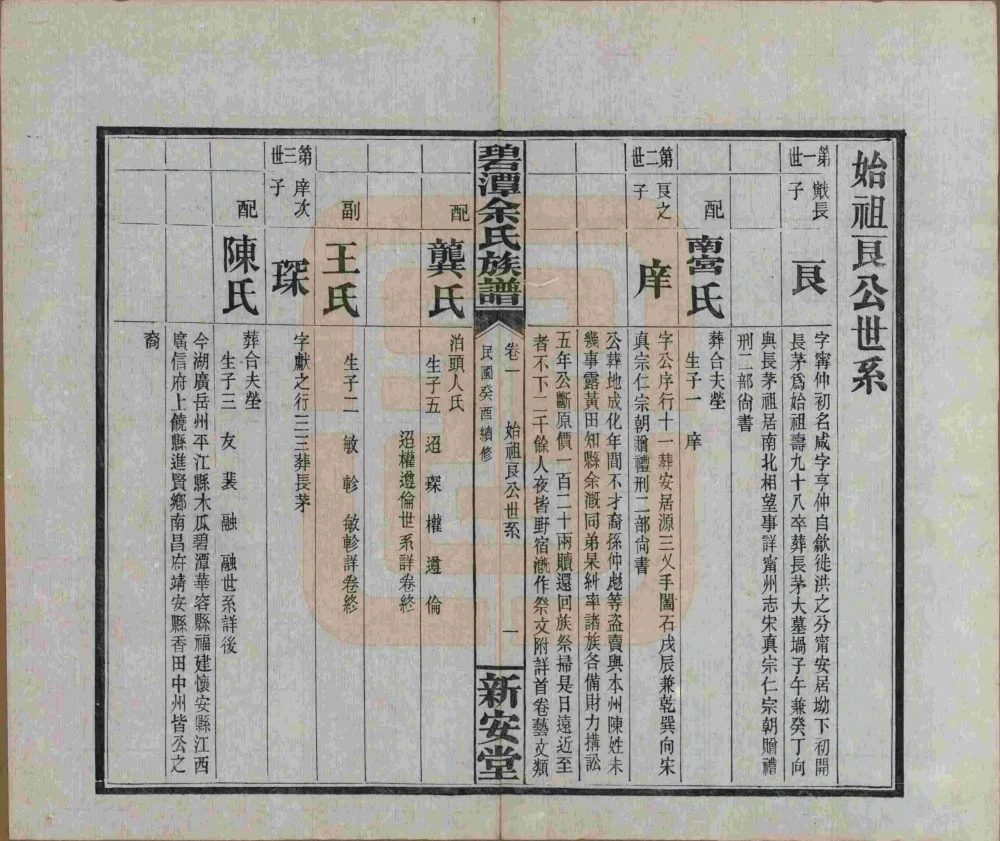 始祖艮公世系
第一世
戭長子
艮
字甯仲初名咸字亨仲自歙徙洪之分甯安居坳下初開
長茅爲始祖壽九十八卒葬長茅大墓堝子午兼癸丁向
與長茅祖居南北相望事詳甯州志宋真宗仁宗朝贈禮
刑二部尚書
配
甯氏
葬合夫塋
生子一 庠
第二世
艮之子
庠
字公序行十一葬安居源三乂手闔石戌辰兼乾巽向宋
真宗仁宗朝贈禮刑二部尚書
公葬地成化年間不才裔孫仲彪等盗賣與本州陳姓未
幾事露黃田知縣余溉同弟杲糾率諸族各備財力搆訟
五年公斷原價一百二十兩贖還回族祭掃是日遠近至
者不下二千餘人夜皆野宿溉作祭文附詳首卷藝文類
碧潭余氏族譜
卷一
始祖艮公世系
民國癸酉續修
一
新安堂
配
龔氏
泊頭人氏
生子五 迢 琛 權 遵 倫
迢權遵倫世系詳卷終
副
王氏
生子二 敏 軫 敏軫詳卷終
第三世
庠次子
琛
字獻之行三三葬長茅
配
陳氏
葬合夫塋
生子三 友 裴 融 融世系詳後
今湖廣岳州平江縣木瓜碧潭華容縣福建懷安縣江西
廣信府上饒縣進賢鄉南昌府靖安縣香田中州皆公之
裔